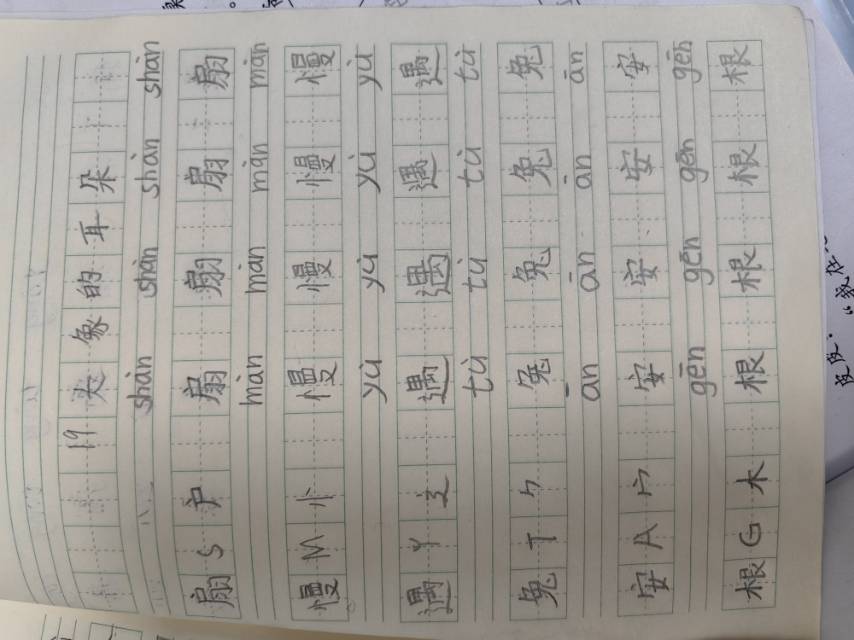 19 大象的耳朵
shàn shàn shàn shàn
扇 S 户 扇 扇 扇 扇
màn màn màn màn
慢 M 忄 慢 慢 慢 慢
yù yù yù yù
遇 Y 辶 遇 遇 遇 遇
tù tù tù tù
兔 T ⺈ 兔 兔 兔 兔
ān ān ān ān
安 A 宀 安 安 安 安
gēn gēn gēn gēn
根 G 木 根 根 根 根